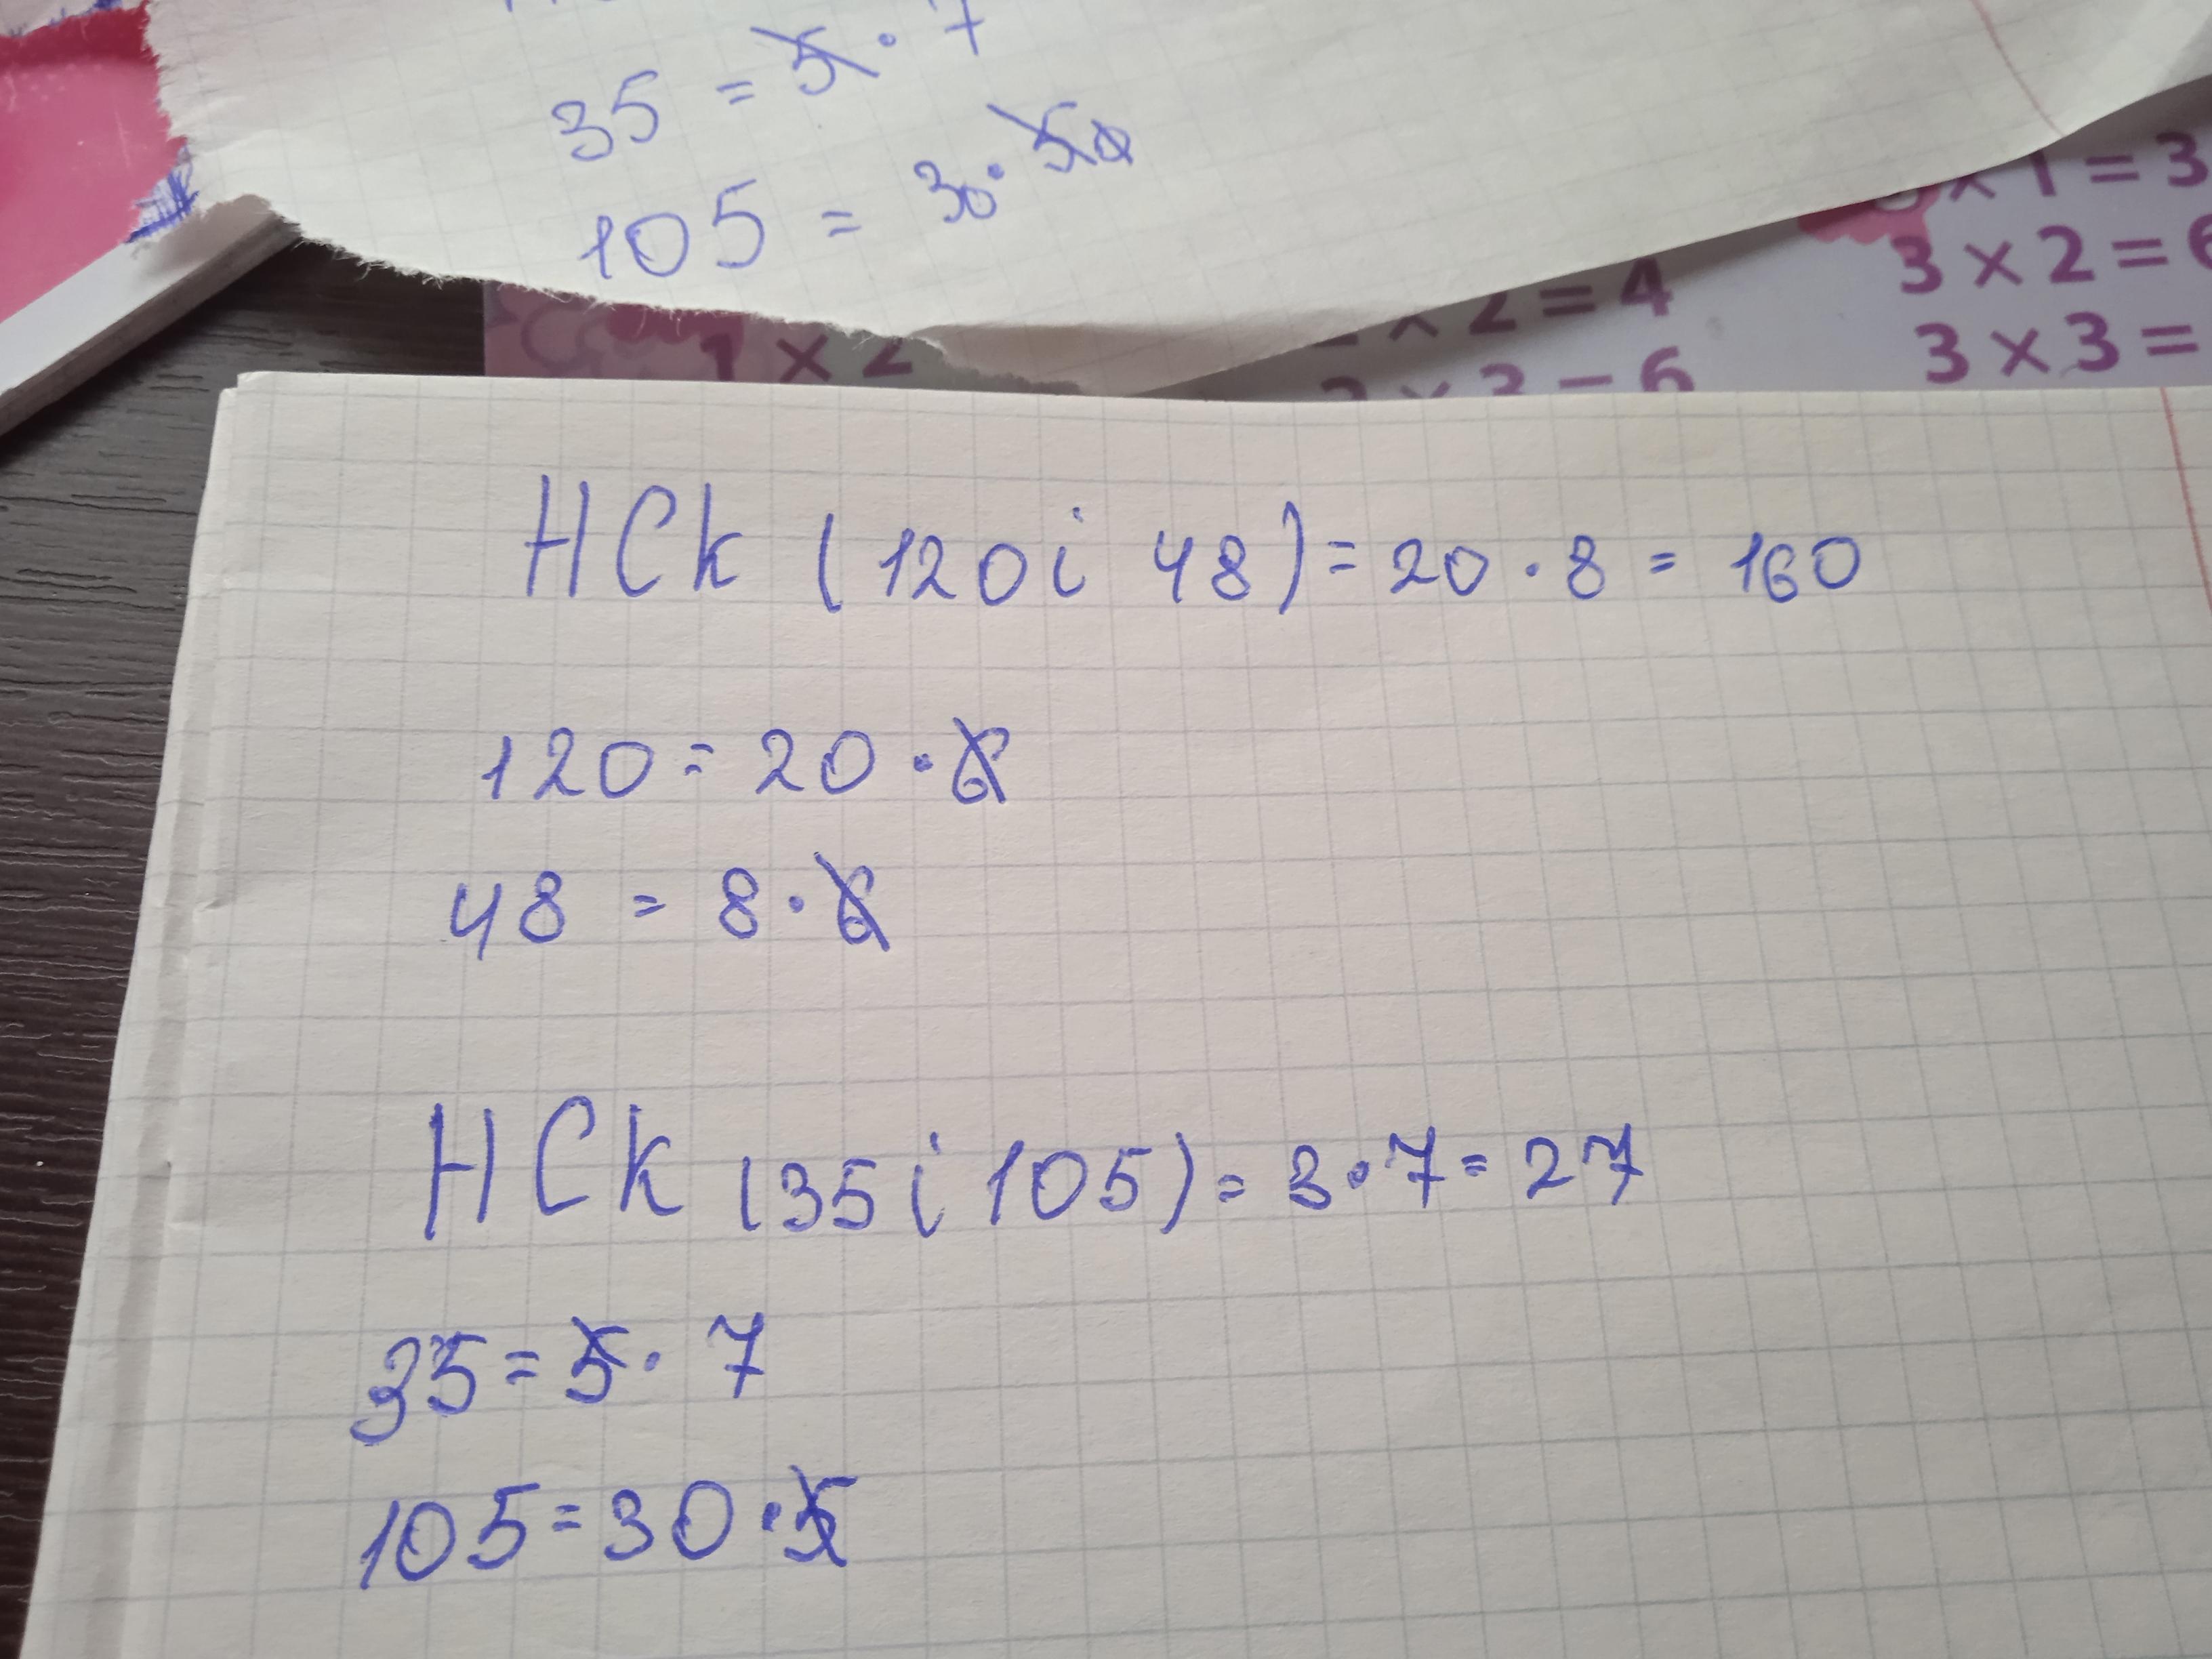 35 = 5 · 7
105 = 30 · 50
× 1 = 3
3 × 2 = 6
3 × 3 =
× 2 = 4
× 3 = 6
1 × 2
НСК (120 і 48) = 20 · 8 = 160
120 = 20 · 6
48 = 8 · 6
НСК (35 і 105) = 3 · 7 = 27
35 = 5 · 7
105 = 30 · 5